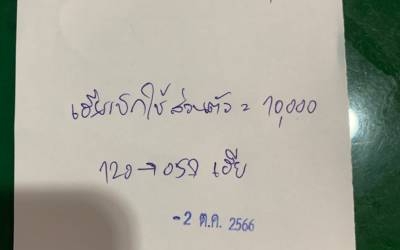 เฮียเบิกใช้ส่วนตัว = 10,000
เฮีย
-2 ต.ค. 2566